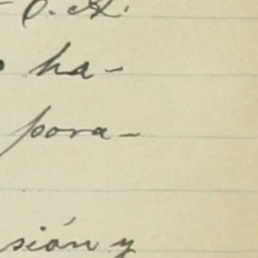 O. A.
ha-
pora-
sión y